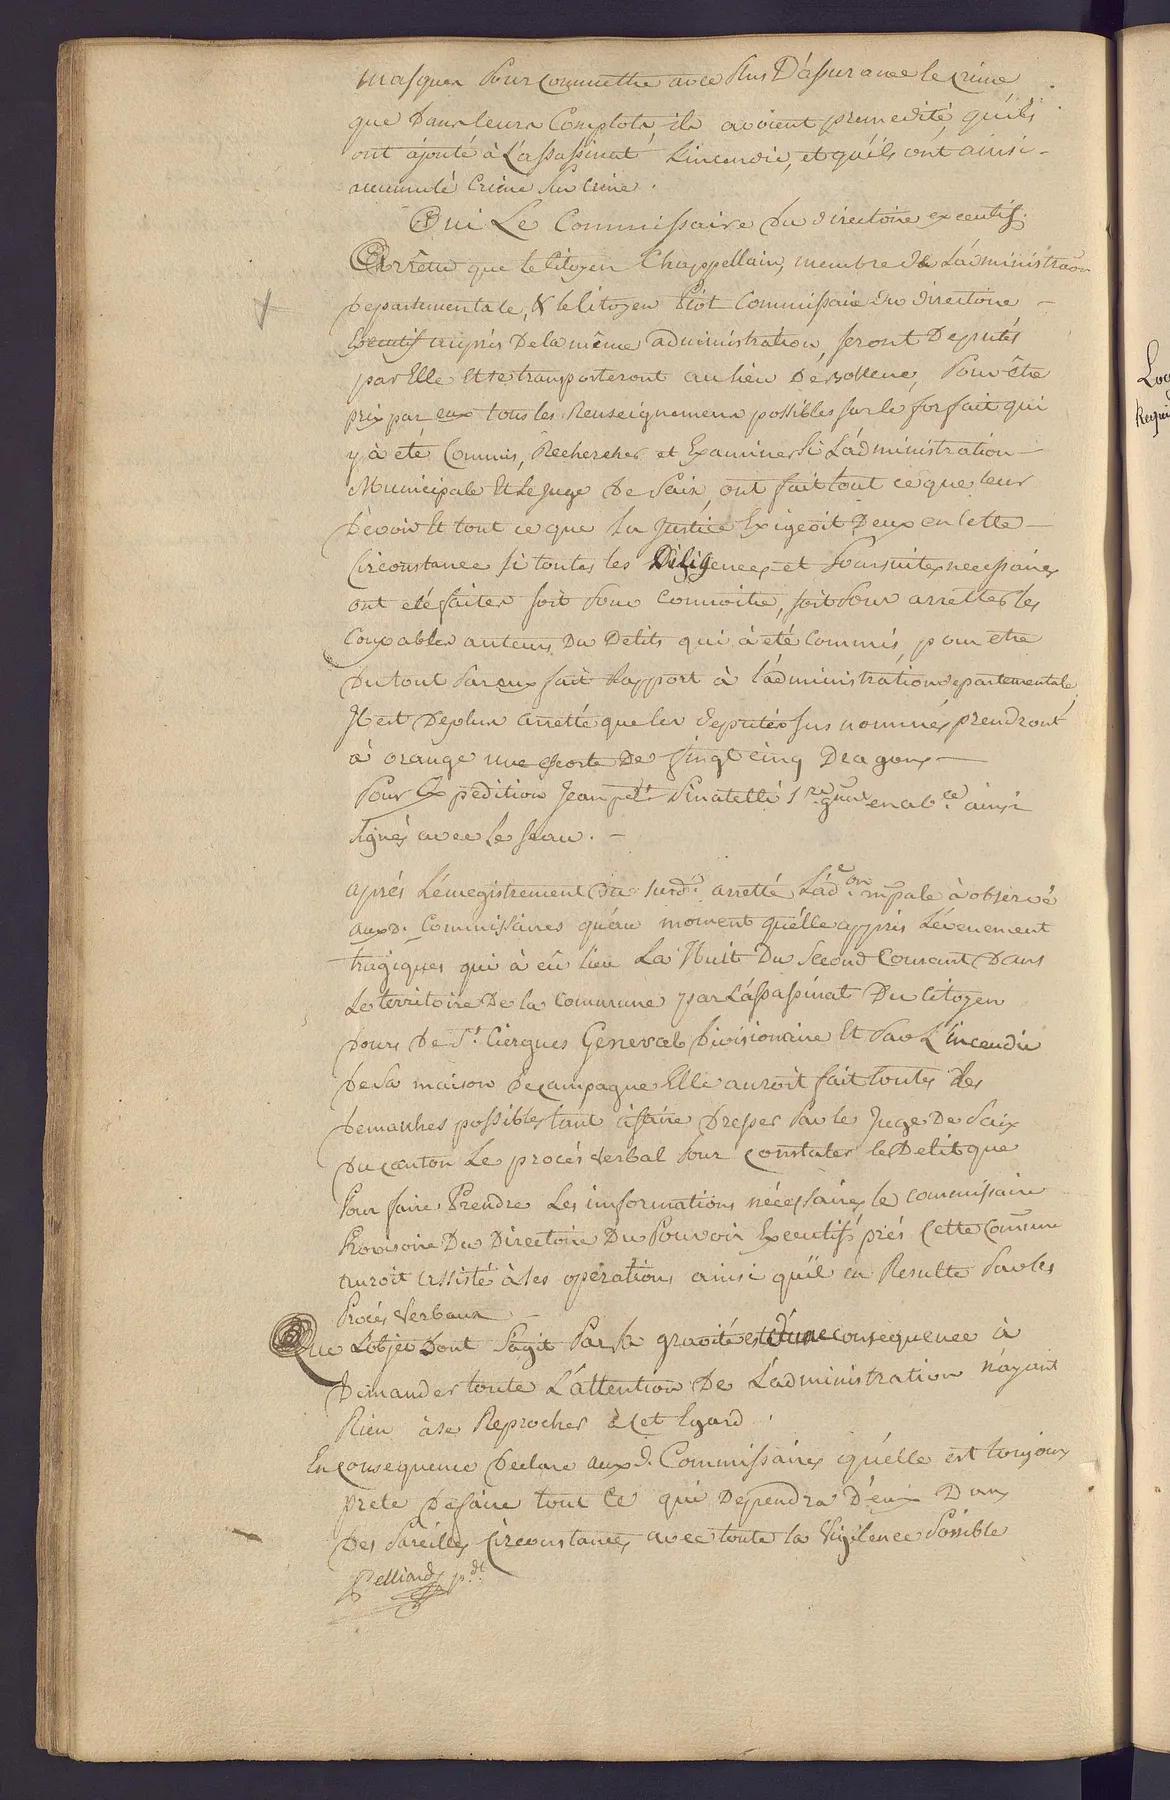 masquer pour commettre avec plus D'assurance le crime
que dans leurs Complots ils avoient premedité, qu'ils
ont ajouté à L'assassinat L'incendie, et qu'ils ont ainsi
accumulé Crime sur crime.
Oui Le Commissaire du directoire executif.
Arrête que le Citoyen Chappellain, membre de L'administraon
departementale, & le Citoyen Piot Commissaire du directoire
Executif auprès De la même administration, seront Deputés
par Elle et se transporteront au lieu De Bollene, Pour être
pris par eux tous les Renseignemens possibles sur le forfait qui
y à été Commis, Rechercher et Examiner Si L'administration
Municipale Et Le Juge De Paix, ont fait tout ce que leur
Devoir Et tout ce que La Justice Exigeoit D'eux en Cette
Circonstance si toutes les Diligences et Poursuites necessaires
ont eté faites soit Pour Connoitre, soit Pour arretter les
Coupables auteurs Du Delits qui à été Commis, pour etre
Du tout Par eux fait Rapport à l'administration departementale
Il est De plus arretté que les deputés sus nommés prendront
à orange une escorte De Vingt cinq Dragons
Pour Expedition Jean pet Pinatelli S.re gnal en ab.ce ainsi
Signés avec Le Sceau.
après L'enregistrement Du susd.t arretté L'ad.on mpale à observé
aux d. Commissaires qu'au moment qu'elle appris L'evenement
tragiques qui à eû lieu La Nuit Du Second Courant Dans
Le territoire De la Commune par L'assassinat Du Citoyen
Dours De S.t Ciergues General Divisionnaire Et Par L'incendie
De Sa maison De campagne Elle auroit fait toutes Les
Demarches possibles tant à faire Dresser Par le Juge De Paix
Du Canton Le procés verbal Pour Constater le Delit que
Pour faire Prendre Les informations nécessaires le commissaire
Provisoire Du Directoire Du Pouvoir Executif prés Cette Commune
auroit assisté à Ses operations ainsi qu'il en Resulte Par les
Procés Verbaux
Que L'objet Dont S'agit Par sa gravité est d'une consequence à
Demander toute L'attention De L'administration n'ayant
Rien à se Reprocher à Cet Egard.
En consequence Declare aux d. Commissaires qu'elle est toujours
prete De faire tout Ce qui Dependra D'eux Dans
Des Pareilles Circonstances avec toute La Vigilence Possible
Pelliard p.dt
Loc
Requi